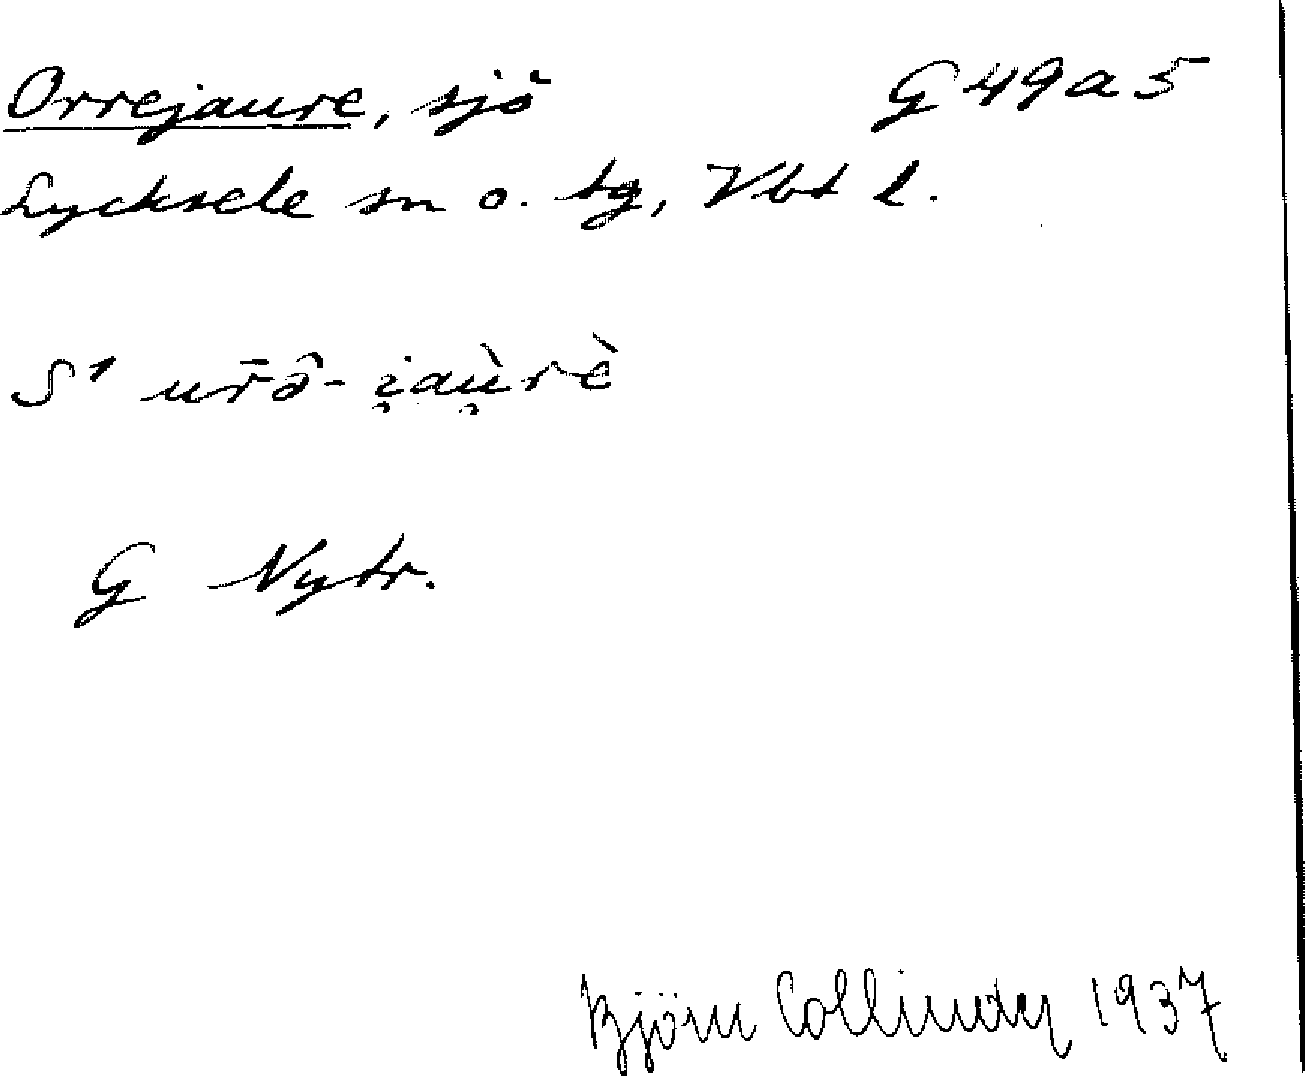 Orrejaure, sjö G 49 a 5
Lycksele sn o. tg, Vbt l.
S1 ur̄ə̂- i̯aù̯rè
G Nytr.
Björn Collinder 1937